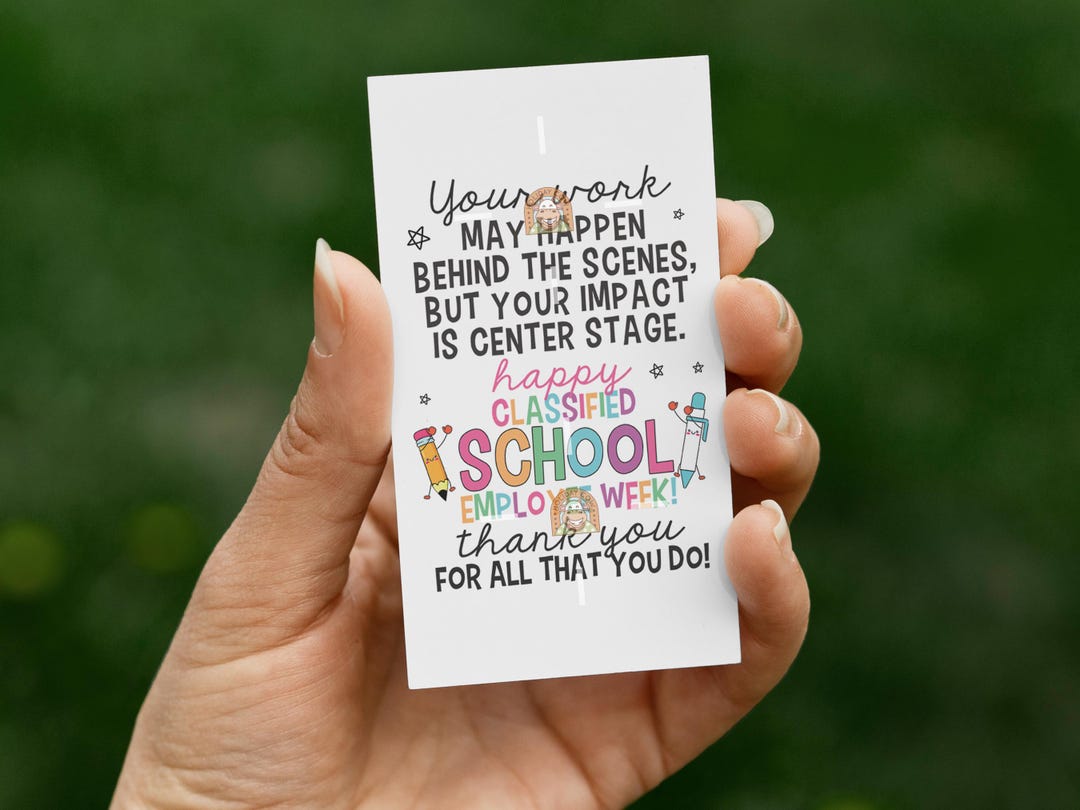 Your work
MAY HAPPEN
BEHIND THE SCENES,
BUT YOUR IMPACT
IS CENTER STAGE.
happy
CLASSIFIED
SCHOOL
EMPLOYEE WEEK!
thank you
FOR ALL THAT YOU DO!